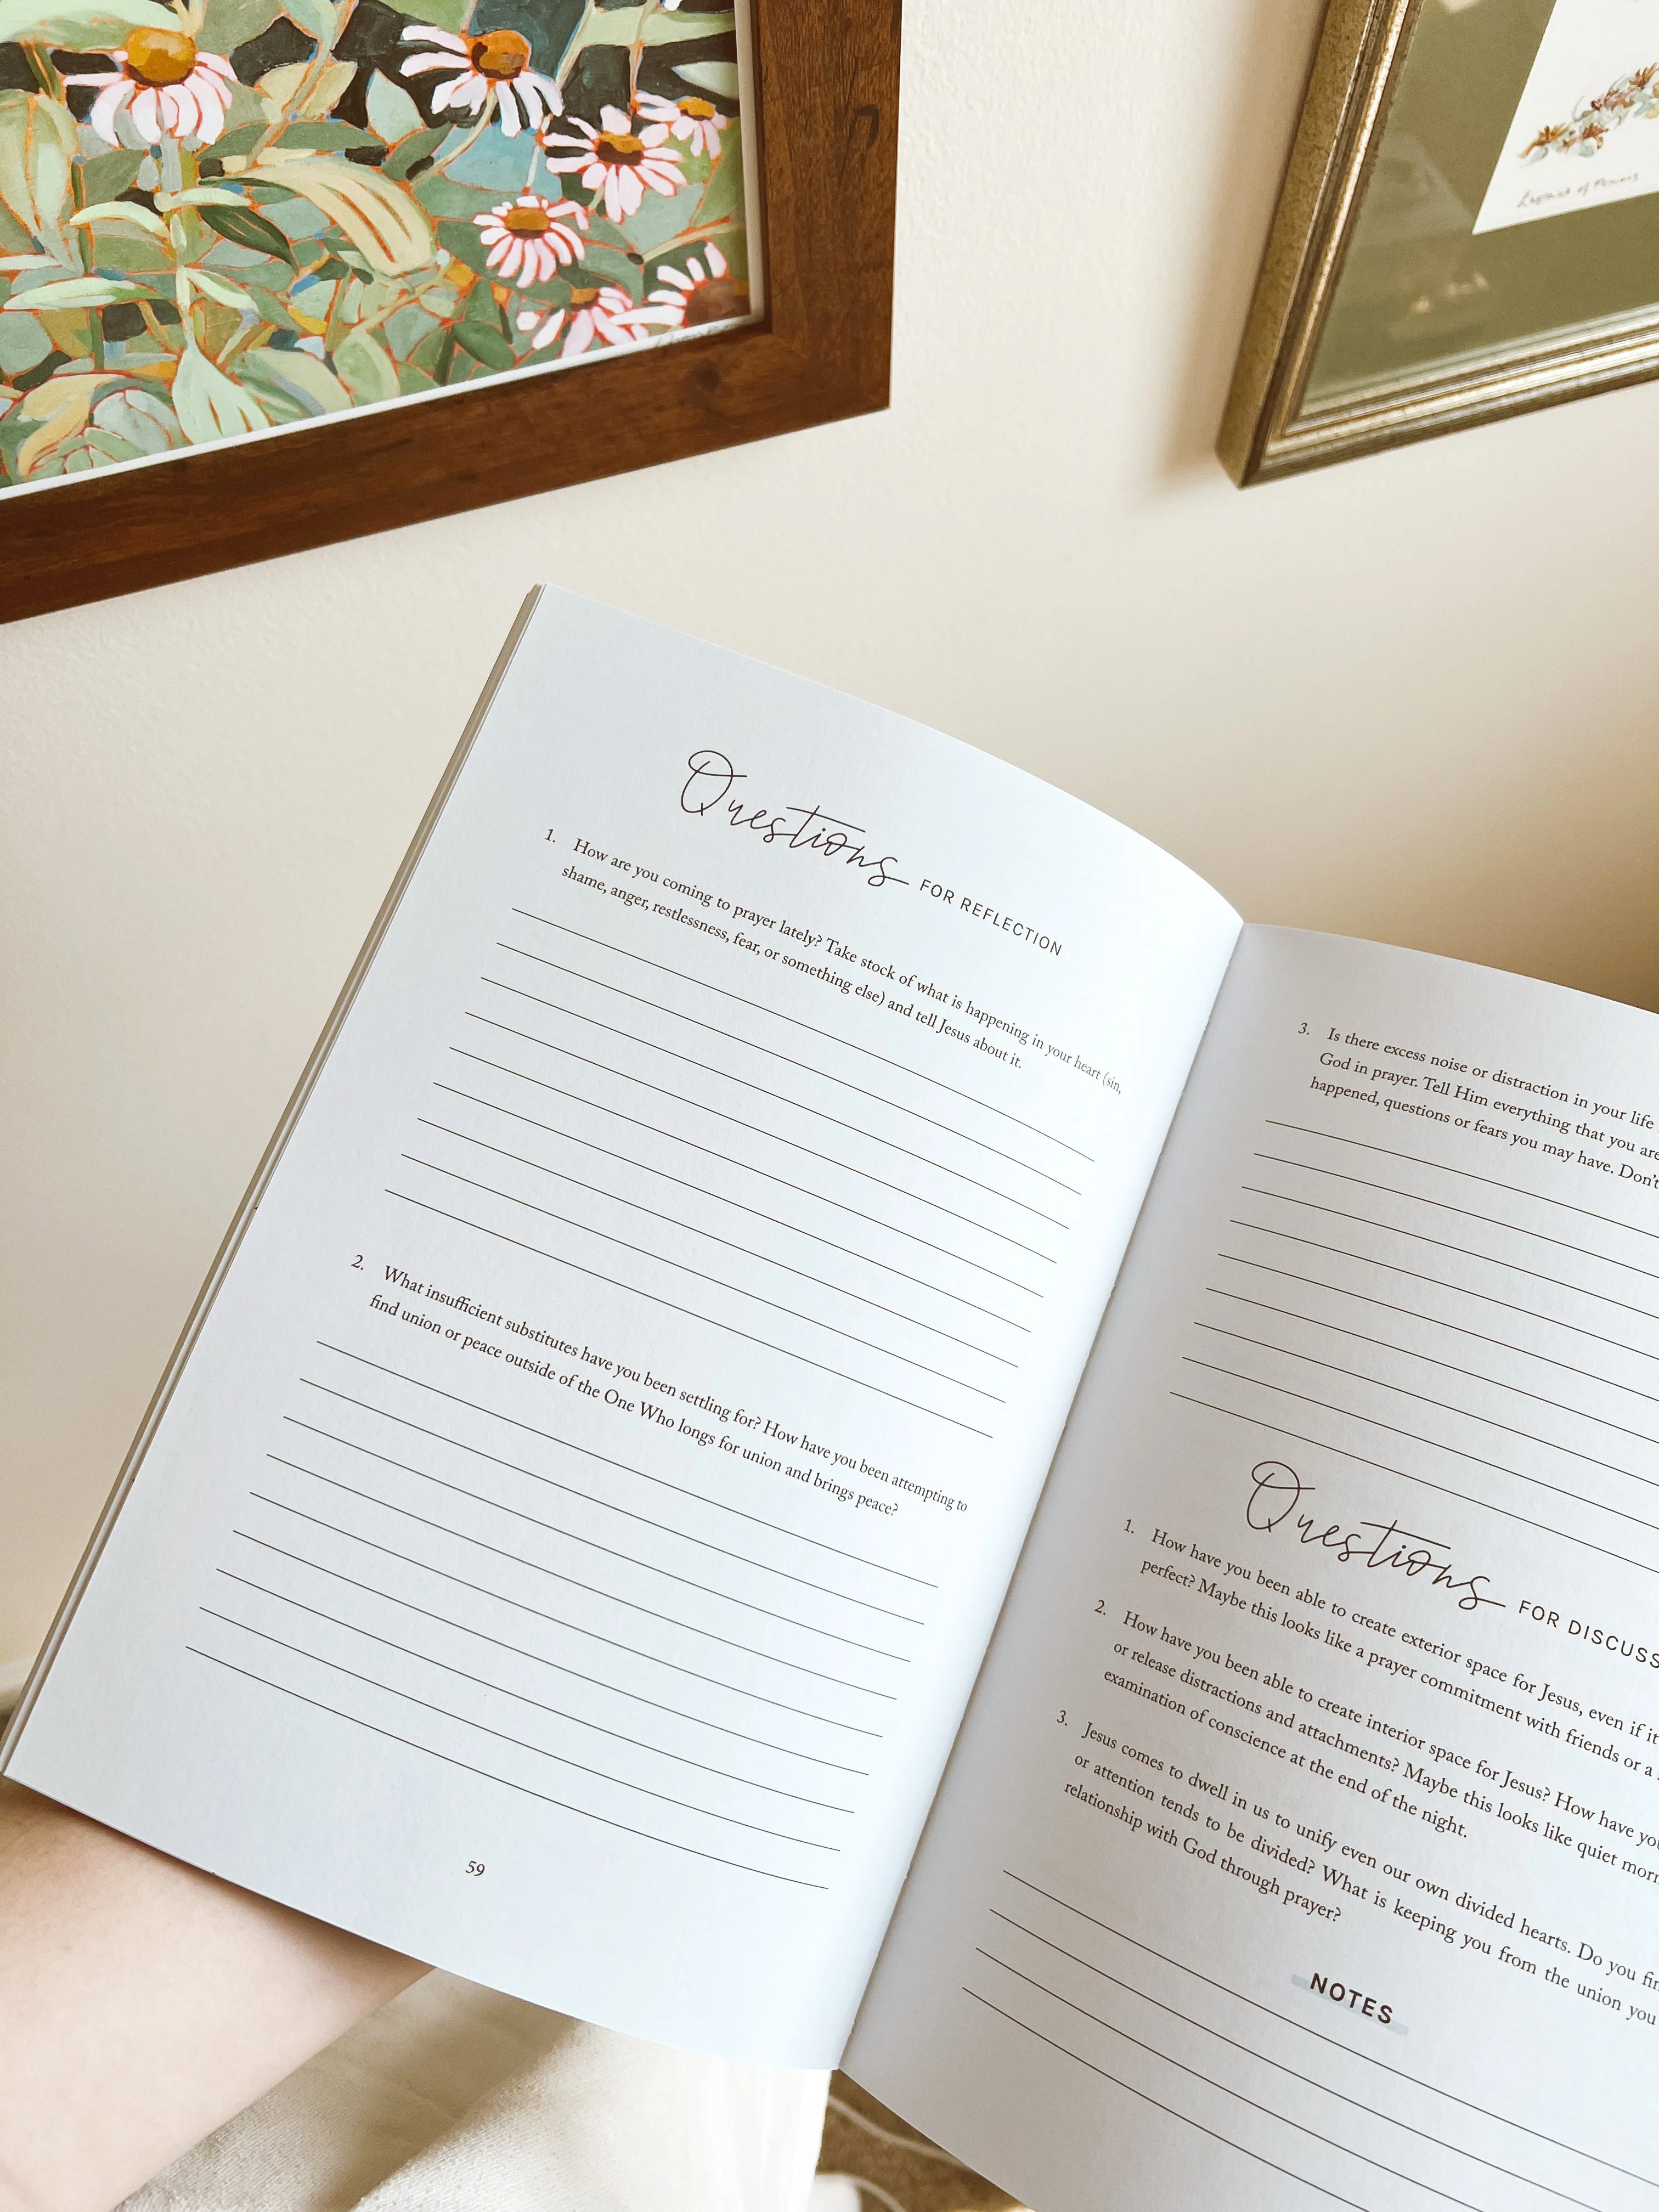 Questions FOR REFLECTION
1. How are you coming to prayer lately? Take stock of what is happening in your heart (sin,
shame, anger, restlessness, fear, or something else) and tell Jesus about it.
2. What insufficient substitutes have you been settling for? How have you been attempting to
find union or peace outside of the One Who longs for union and brings peace?
59
3. Is there excess noise or distraction in your life
God in prayer. Tell Him everything that you are
happened, questions or fears you may have. Don't
Questions FOR DISCUSS
1. How have you been able to create exterior space for Jesus, even if it
perfect? Maybe this looks like a prayer commitment with friends or a
2. How have you been able to create interior space for Jesus? How have you
or release distractions and attachments? Maybe this looks like quiet morn
examination of conscience at the end of the night.
3. Jesus comes to dwell in us to unify even our own divided hearts. Do you fin
or attention tends to be divided? What is keeping you from the union you
relationship with God through prayer?
NOTES